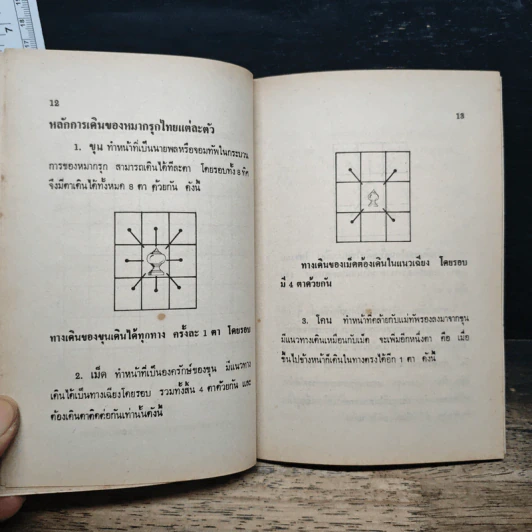 12
หลักการเดินของหมากรุกไทยแต่ละตัว
1. ขุน ทำหน้าที่เป็นนายพลหรือจอมทัพในกระบวน
การของหมากรุก สามารถเดินได้ทีละตา โดยรอบทั้ง 8 ทิศ
จึงมีตาเดินได้ทั้งหมด 8 ตา ด้วยกัน ดังนี้
ทางเดินของขุนเดินได้ทุกทาง ครั้งละ 1 ตา โดยรอบ
2. เม็ด ทำหน้าที่เป็นองครักษ์ของขุน มีแนวทาง
เดินได้เป็นทางเฉียงโดยรอบ รวมทั้งสิ้น 4 ตาด้วยกัน และ
ต้องเดินตาติดต่อกันเท่านั้นดังนี้
13
ทางเดินของเม็ดต้องเดินในแนวเฉียง โดยรอบ
มี 4 ตาด้วยกัน
3. โคน ทำหน้าที่คล้ายกับแม่ทัพรองลงมาจากขุน
มีแนวทางเดินเหมือนกับเม็ด จะเพิ่มอีกหนึ่งตา คือ เมื่อ
ขึ้นไปข้างหน้าก็เดินในทางตรงได้อีก 1 ตา ดังนี้